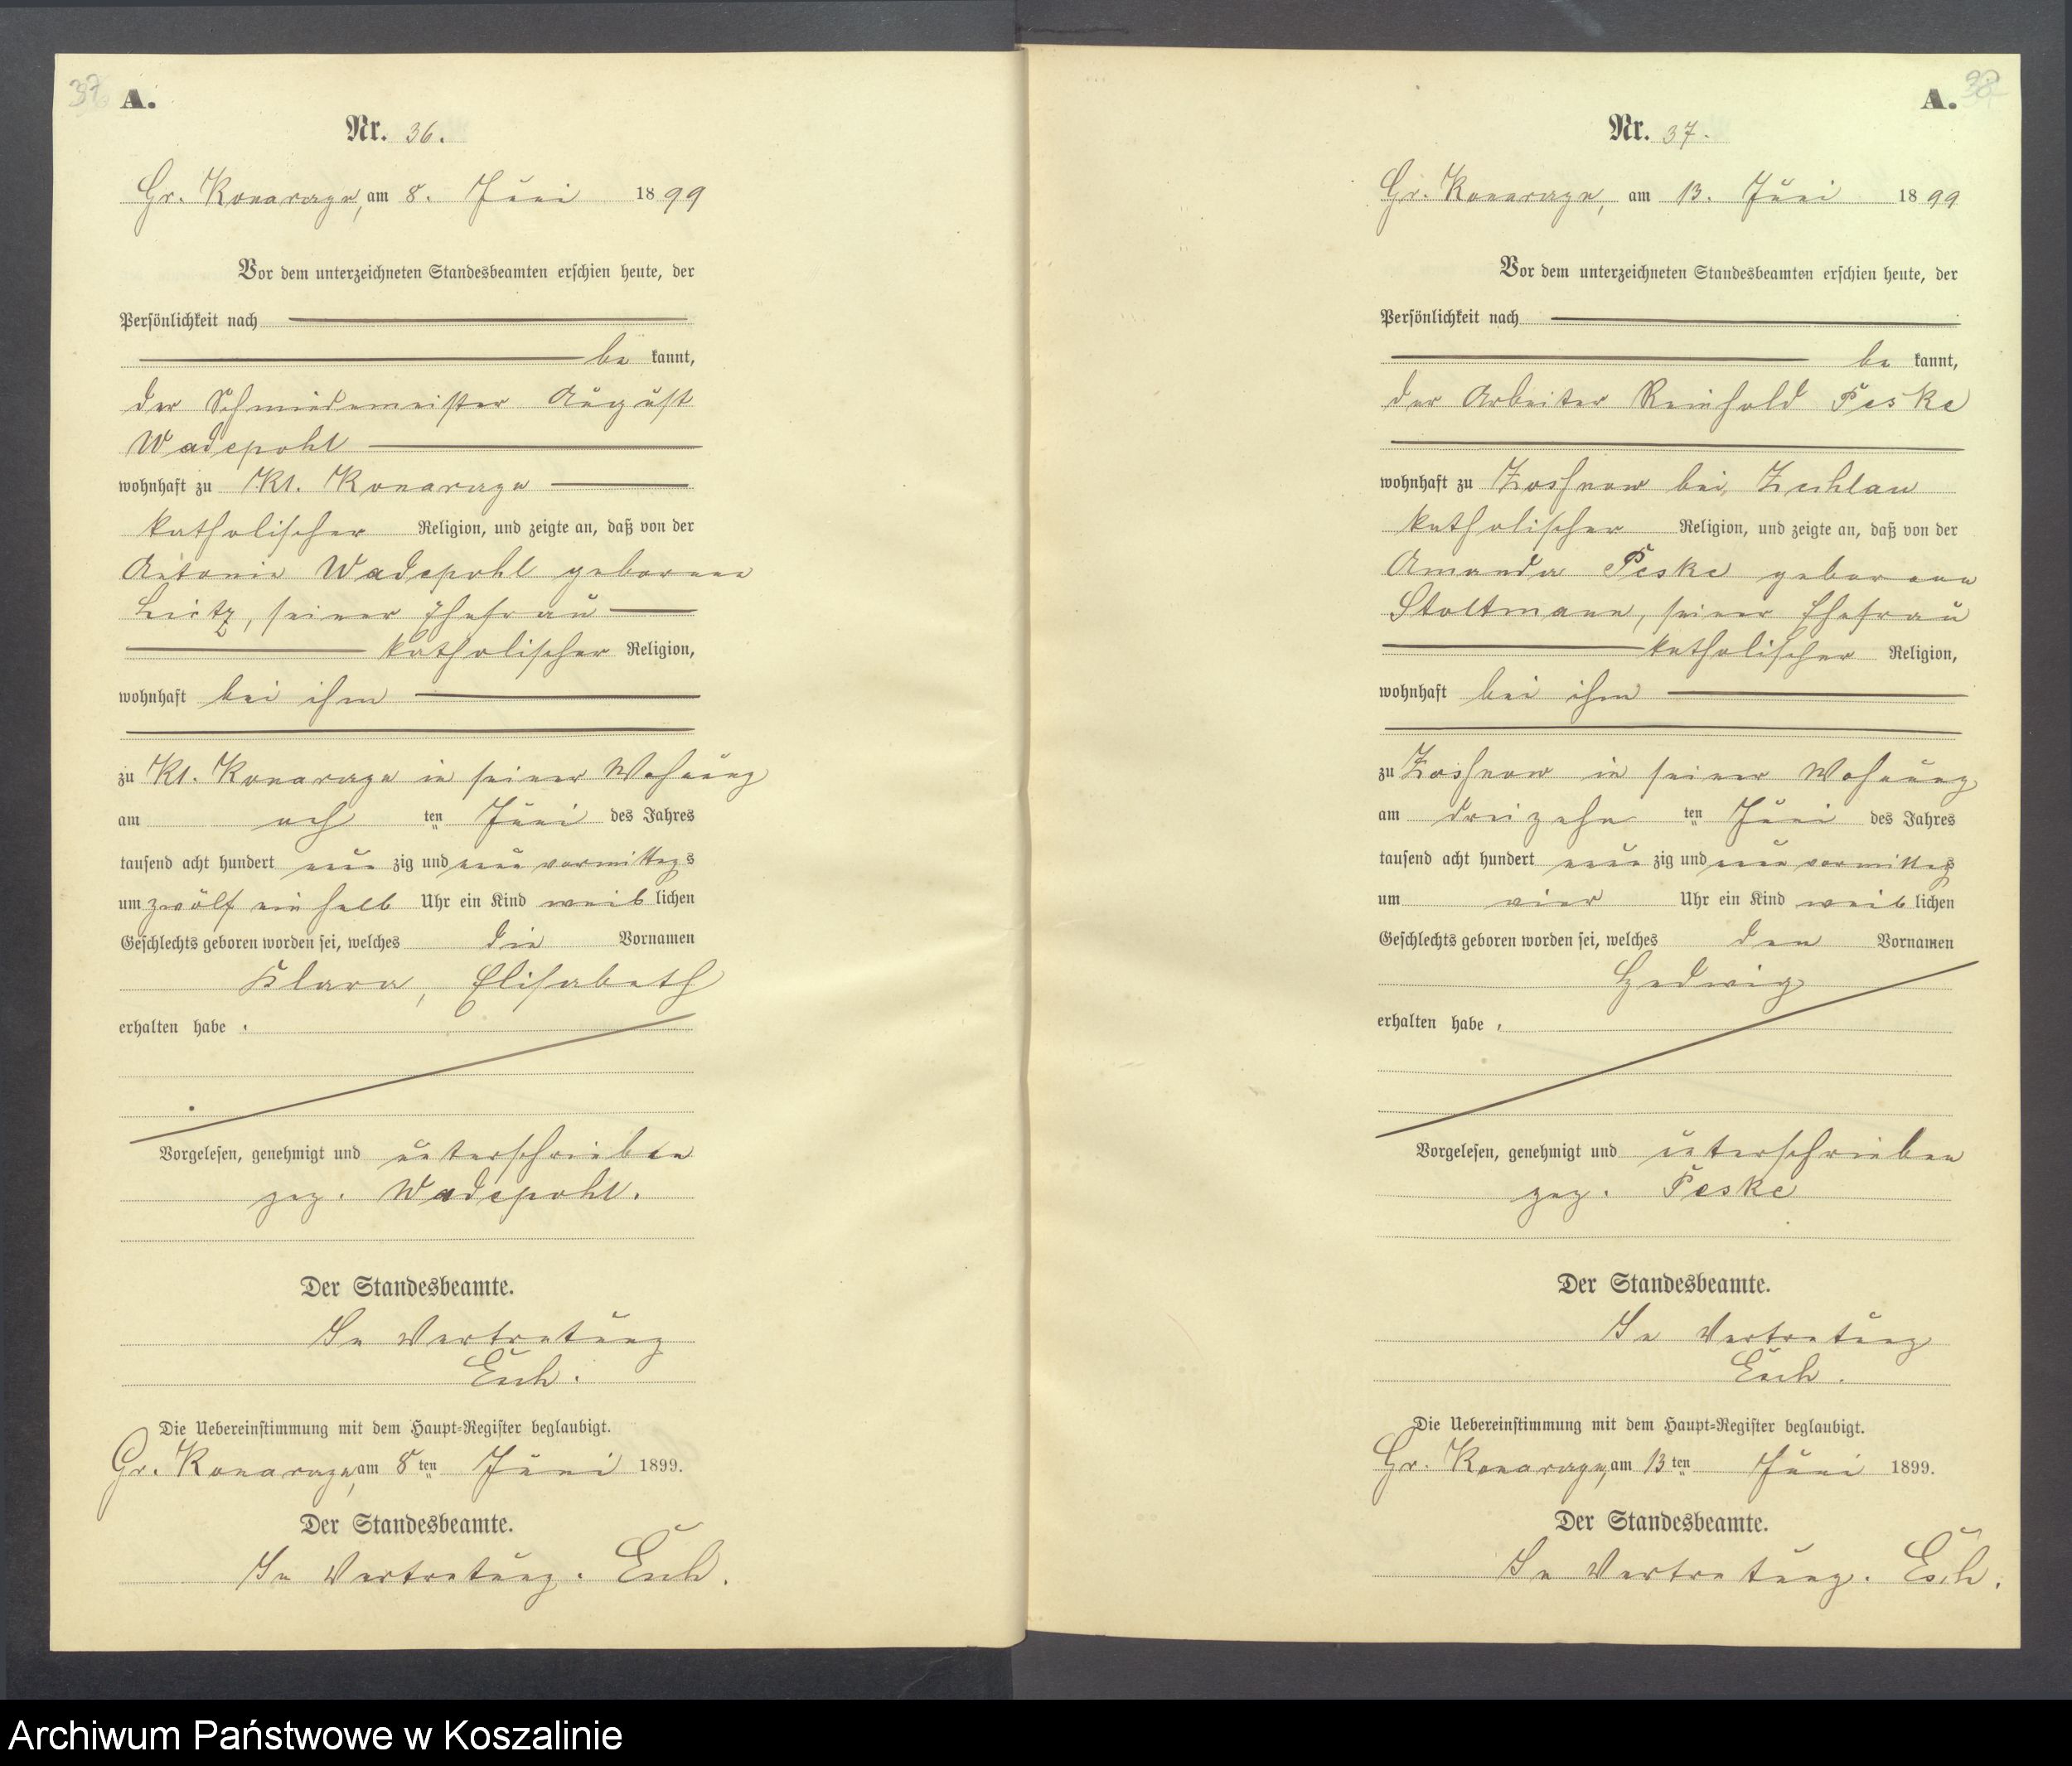 37
A.
Nr. 36.
Gr. Konarczyn, am 8. Juni 1899
Vor dem unterzeichneten Standesbeamten erschien heute, der
Persönlichkeit nach
be kannt,
der Schmiedemeister August
Wadepohl
wohnhaft zu Kl. Konarczyn
katholischer Religion, und zeigte an, daß von der
Antonie Wadepohl geborene
Lietz, seiner Ehefrau
katholischer Religion,
wohnhaft bei ihm
zu Kl. Konarczyn in seiner Wohnung
am ach ten Juni des Jahres
tausend acht hundert neun zig und neun vormittags
um zwölf ein halb Uhr ein Kind weib lichen
Geschlechts geboren worden sei, welches die Vornamen
Klara, Elisabeth
erhalten habe.
Vorgelesen, genehmigt und unterschrieben
gez. Wadepohl.
Der Standesbeamte.
In Vertretung
Esch.
Die Uebereinstimmung mit dem Haupt-Register beglaubigt.
Gr. Konarczyn, am 8ten Juni 1899.
Der Standesbeamte.
In Vertretung. Esch.
A.
38
Nr. 37.
Gr. Konarczyn, am 13. Juni 1899
Vor dem unterzeichneten Standesbeamten erschien heute, der
Persönlichkeit nach
be kannt,
der Arbeiter Reinhold Peske
wohnhaft zu bei Zechlau
katholischer Religion, und zeigte an, daß von der
Amanda Peske geborene
Stoltmann, seiner Ehefrau
katholischer Religion,
wohnhaft bei ihm
zu in seiner Wohnung
am dreizehn ten Juni des Jahres
tausend acht hundert neun zig und neun vormittags
um vier Uhr ein Kind weib lichen
Geschlechts geboren worden sei, welches den Vornamen
Hedwig
erhalten habe,
Vorgelesen, genehmigt und unterschrieben
gez. Peske
Der Standesbeamte.
In Vertretung
Esch.
Die Uebereinstimmung mit dem Haupt-Register beglaubigt.
Gr. Konarczyn, am 13ten Juni 1899.
Der Standesbeamte.
In Vertretung. Esch.
Archiwum Państwowe w Koszalinie